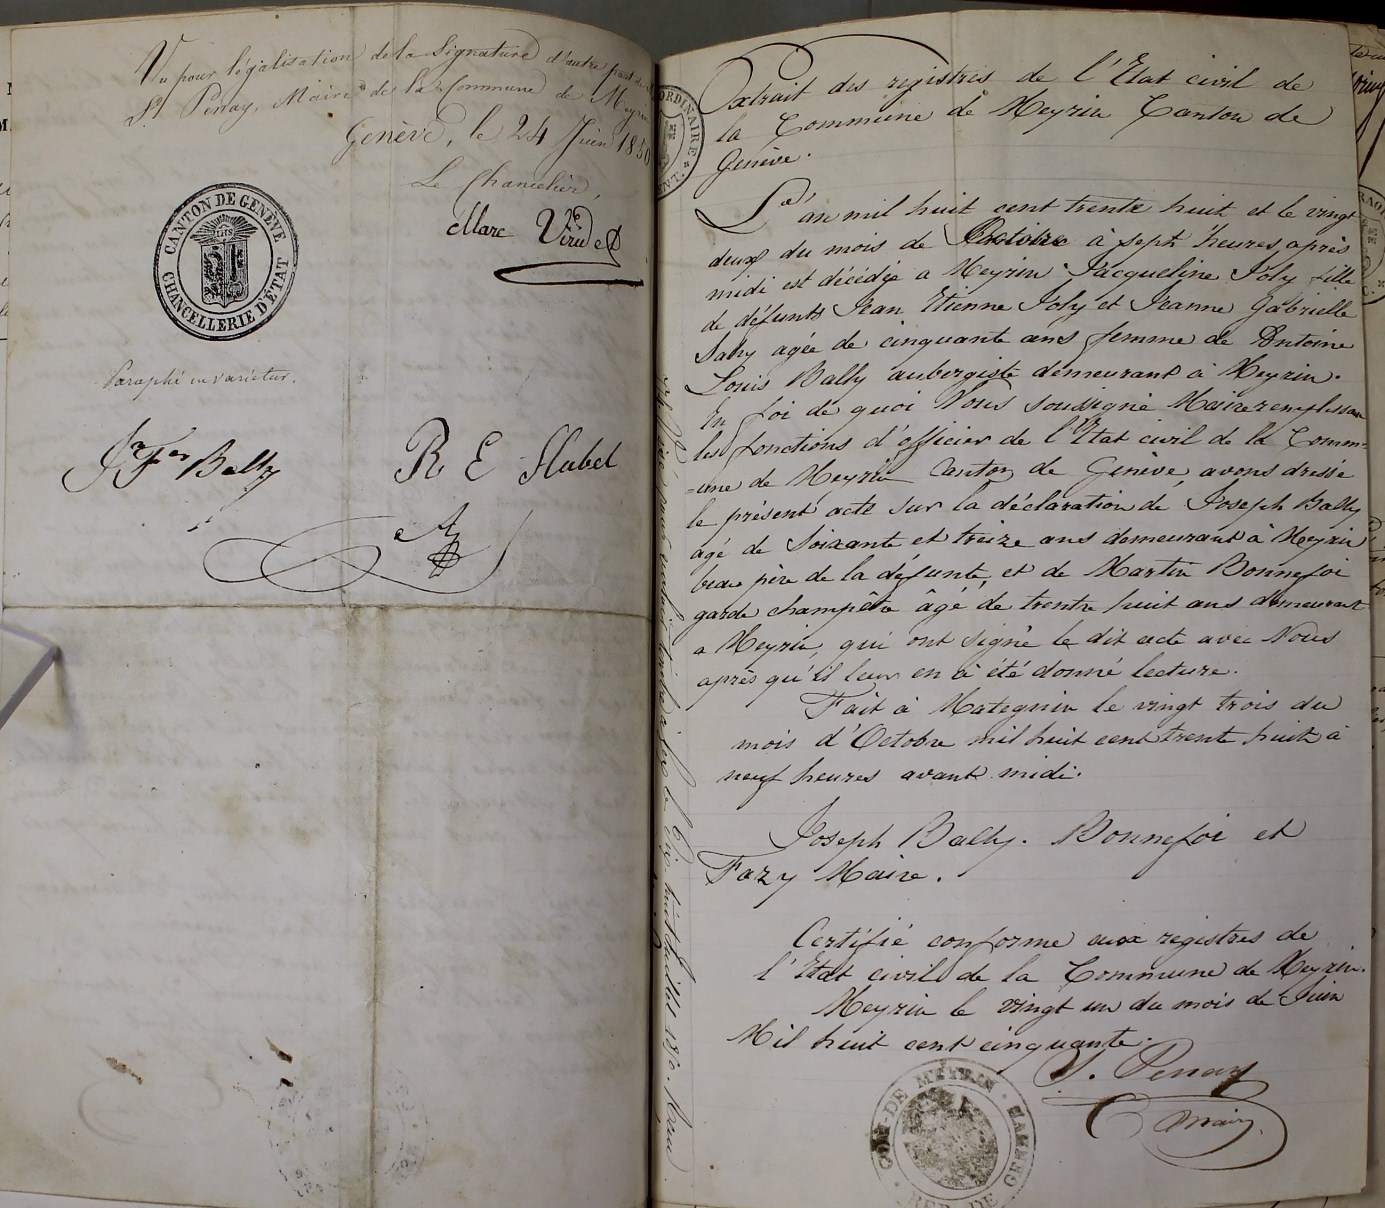 Vu pour légalisation de la Signature d'autre part de
Sr Penay, Maire de la Commune de Meyrin
Genève, le 24 Juin 1850
Le Chancelier,
Marc Viridet
CANTON DE GENÈVE
CHANCELLERIE D'ÉTAT
Paraphé ne varietur.
Jn Fs Bally
R E Hubel
Extrait des registres de l'Etat civil de
la Commune de Meyrin Canton de
Genève.
L'an mil huit cent trente huit et le vingt
deux du mois de Octobre à sept heures après
midi est décédée a Meyrin Jacqueline Joly fille
de défunts Jean Etienne Joly et Jeanne Gabrielle
Saby agée de cinquante ans femme de Antoine
Louis Bally aubergiste demeurant à Meyrin.
En foi de quoi Nous soussigné Maire remplissant
les fonctions d'officier de l'Etat civil de la Comm=
=une de Meyrin Canton de Genève, avons dressé
le présent acte sur la déclaration de Joseph Bally
agé de Soixante et treize ans demeurant à Meyrin
beau père de la défunte, et de Martin Bonnefoi
garde champêtre âgé de trente huit ans demeurant
a Meyrin, qui ont signé le dit acte avec Nous
après qu'il leur en à été donné lecture.
Fait à Mategnin le vingt trois du
mois d'Octobre mil huit cent trente huit à
neuf heures avant midi.
Joseph Bally. Bonnefoi et
Fazy Maire.
Certifié conforme aux registres de
l'Etat civil de la Commune de Meyrin.
Meyrin le vingt un du mois de Juin
Mil huit cent cinquante.
J. Penay
Maire.
COM. DE MEYRIN
REP. DE GENÈVE